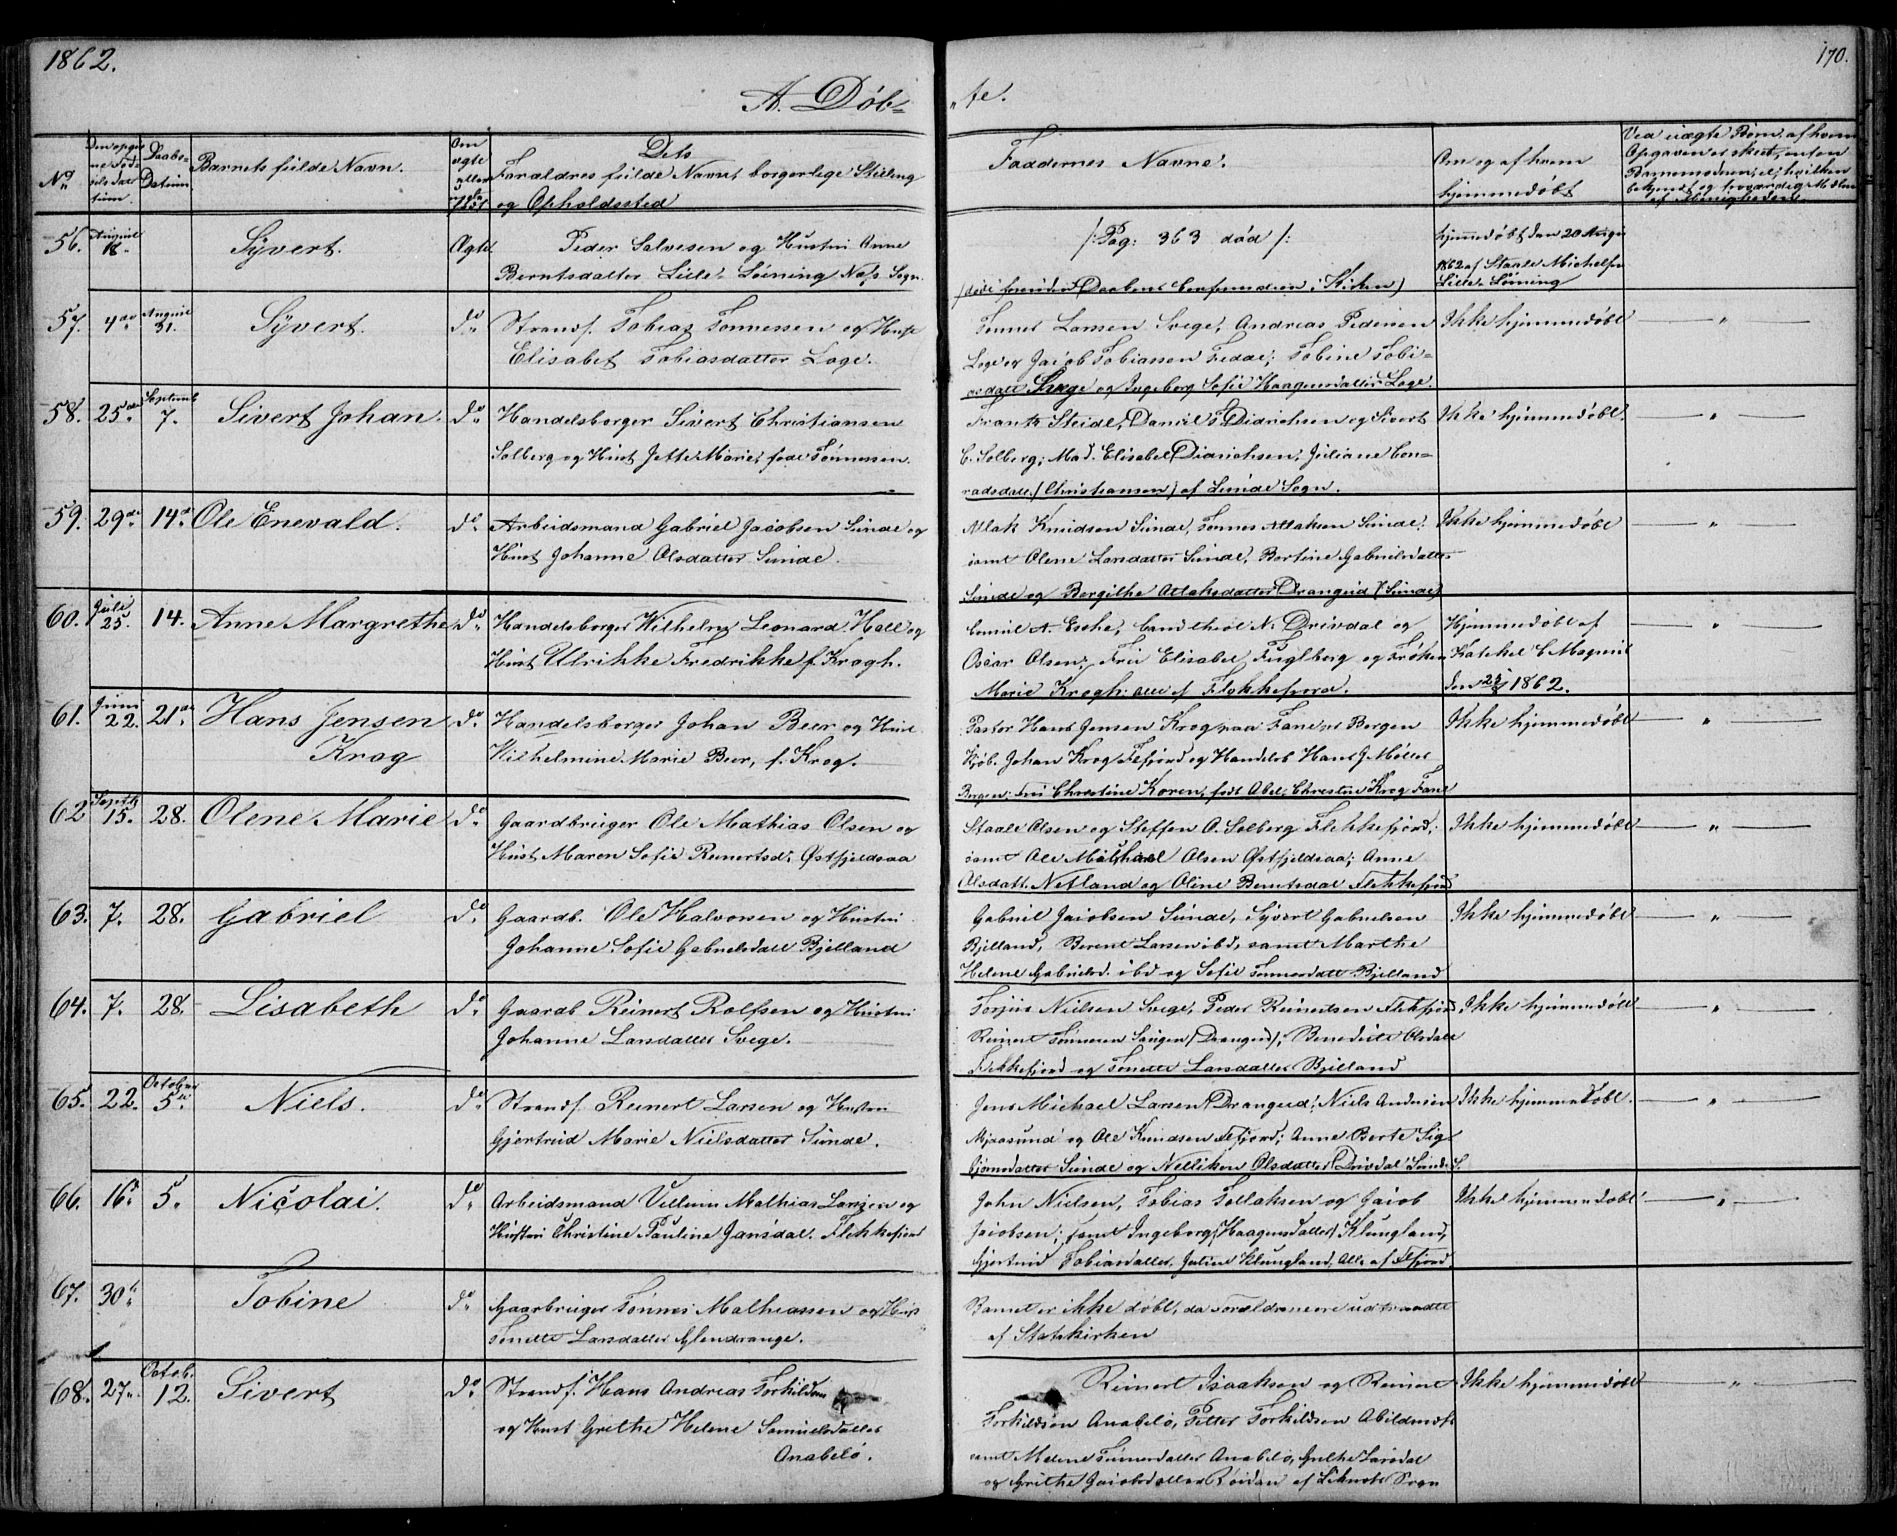 1862.
170.
A. Døb-
"te.
No
Den opgivne Fødselsdatum
Daabs-Datum
Barnets fulde Navn.
Om ægte eller uægte
Dets
Forældres fulde Navn, borgerlige Stilling
og Opholdssted
Faddernes Navne.
Om og af hvem
hjemmedøbt
Ved uægte Børn, af hvem
Opgaven er skeet, enten
Barnemoderen, el. hvilken
bekjendt og troværdig Medlem
af Menigheden.
56. August 18. Sÿvert. Ægte Peder Salvesen og Hustru Anne
Berntsdatter Lille-Løining Næs Sogn.
/: Pag: 363 død /:
hjemmedøbt den 20 August
1862 af Staale Michelsen
Lille-Løining
57. 4de August 31. Sÿvert. do Strands. Tobias Tønnessen og Hust
Elisabet Tobiasdatter Loge.
Tønnes Larsen Svege, Andreas Pedersen
Loge og Jacob Tobiassen Fedde; Tobine Tobi-
asdatt Svege og Ingeborg Sofie Haagensdatter Loge.
Ikke hjemmedøbt "
58. 25de Septemb 7. Sivert Johan. do Handelsborger Sivert Christiansen
Solberg og Hust Jette Marie, født Tønnessen.
Frantz Steidl, Daniel Didrichsen og Sivert
C. Solberg; Mad. Elisabet Didrichsen, Juliane Con-
radsdatt. (Christiansen) af Lunde Sogn.
Ikke hjemmedøbt. "
59. 29de 14de Ole Enevald. do Arbeidsmand Gabriel Jacobsen Sunde og
Hust Johanne Olsdatter Sunde.
Atlak Knudsen Sunde, Tønnes Atlaksen Sunde;
samt Olene Larsdatter Sunde, Bertine Gabrielsdatter
Sunde og Bergithe Atlaksdatter Drangeid (Sunde)
Ikke hjemmedøbt "
60. Juli 25. 14. Anne Margrethe do Handelsborger Wilhelm Leonard Hall og
Hust Ulrikke Fredrikke f. Krogh.
Emil A. Esche, Cand theol N. Drivdal og
Oscar Olsen; Fru Elisabet Fuglberg og Frøken
Marie Krogh. alle af Flekkefjord.
Hjemmedøbt af
Katekel C Magnus
den 1862. "
61. Juni 22. 21de Hans Jensen
Krog do Handelsborger Johan Beer og Hust
Wilhelmine Marie Beer, f. Krog.
Pastor Hans Jensen Krog paa Fane ved Bergen
Kjøb. Johan Krog Flefjord og Handelsb Hans J Møller
Bergen; Fru Christine Koren, født Abel; Christine Krog Fane
Ikke hjemmedøbt "
62 Septb 15. 28. Olene Marie do Gaardbruger Ole Mathias Olsen og
Hust Maren Sofie Reinertsd. Østfjeldsaa
Staale Olsen og Steffen O. Solberg Flekkefjord;
samt Ole Michael Olsen Østfjeldsaa; Anne
Olsdatt. Netland og Oline Berntsdat Flekkefjord
Ikke hjemmedøbt "
63. 7. 28. Gabriel do Gaardb. Ole Halvorsen og Hustru
Johanne Sofie Gabrielsdatt Bjelland
Gabriel Jacobsen Sunde, Sÿvert Gabrielsen
Bjelland, Berent Larsen ibd, samt Marthe
Helene Gabrielsd. ibd og Sofie Tønnesdatt Bjelland
Ikke hjemmedøbt "
64. 7. 28. Lisabeth do Gaardb Reinert Rolfsen og Hustru
Johanne Larsdatter Svege.
Torjus Nielsen Svege, Peder Reinertsen Flekfjord
Reinert Tønnesen (Drangeid); Benedicte Olsdatt
Flekkefjord og Tonette Larsdatter Bjelland
Ikke hjemmedøbt "
65. 22. October 5te Niels. do Strands. Reinert Larsen og Hustru
Gjertrud Marie Nielsdatter Sunde.
Jens Michael Larsen Drangeid, Niels Andersen
Mjaasund og Ole Knudsen Flefjord; Anne Berte Sig-
bjørnsdatter Sunde og Nelliken Olsdatter Drivdal Sunde S.
Ikke hjemmedøbt. "
66. 16de 5. Nicolai. do Arbeidsmand Villum Mathias Larsen og
Hustru Christine Pauline Jansdat. Flekkefjord
John Nielsen, Tobias Tollaksen og Jacob
Jacobsen; samt Ingeborg (Haagensdatter) Klungland,
Gjertrud Tobiasdatter, Juline Klungland, Alle af Flefjord
Ikke hjemmedøbt "
67. 30te Tobine do Gaarbruger Tønnes Mathiassen og Hust
Tonette Larsdatter Glendrange.
Barnet er ikke døbt, da Forældrene ere udtraadte
af Statskirken
68. 27. Octob. 12. Sivert do Strands. Hans Andreas Torkildsen
og Hust Grethe Helene Samuelsdatter
Anabelø.
Reinert Isaaksen og Reinert
Torkildsen Anabelø, Petter Torkildsen Abildsnæs
samt Malene Tønnesdatter Anabelø, Grethe Larsdat
og Grethe Jacobsdatter Røidan af Liknes Sogn
Ikke hjemmedøbt "